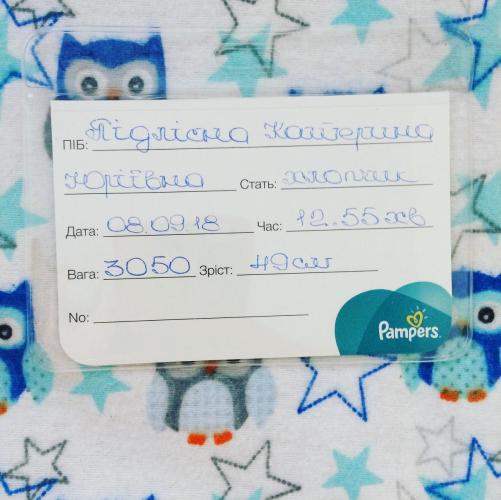 ПІБ: Підлісна Катерина
Юріївна Стать: хлопчик
Дата: 08.09.18 Час: 12.55 хв
Вага: 3050 Зріст: 49 см
No:
Pampers